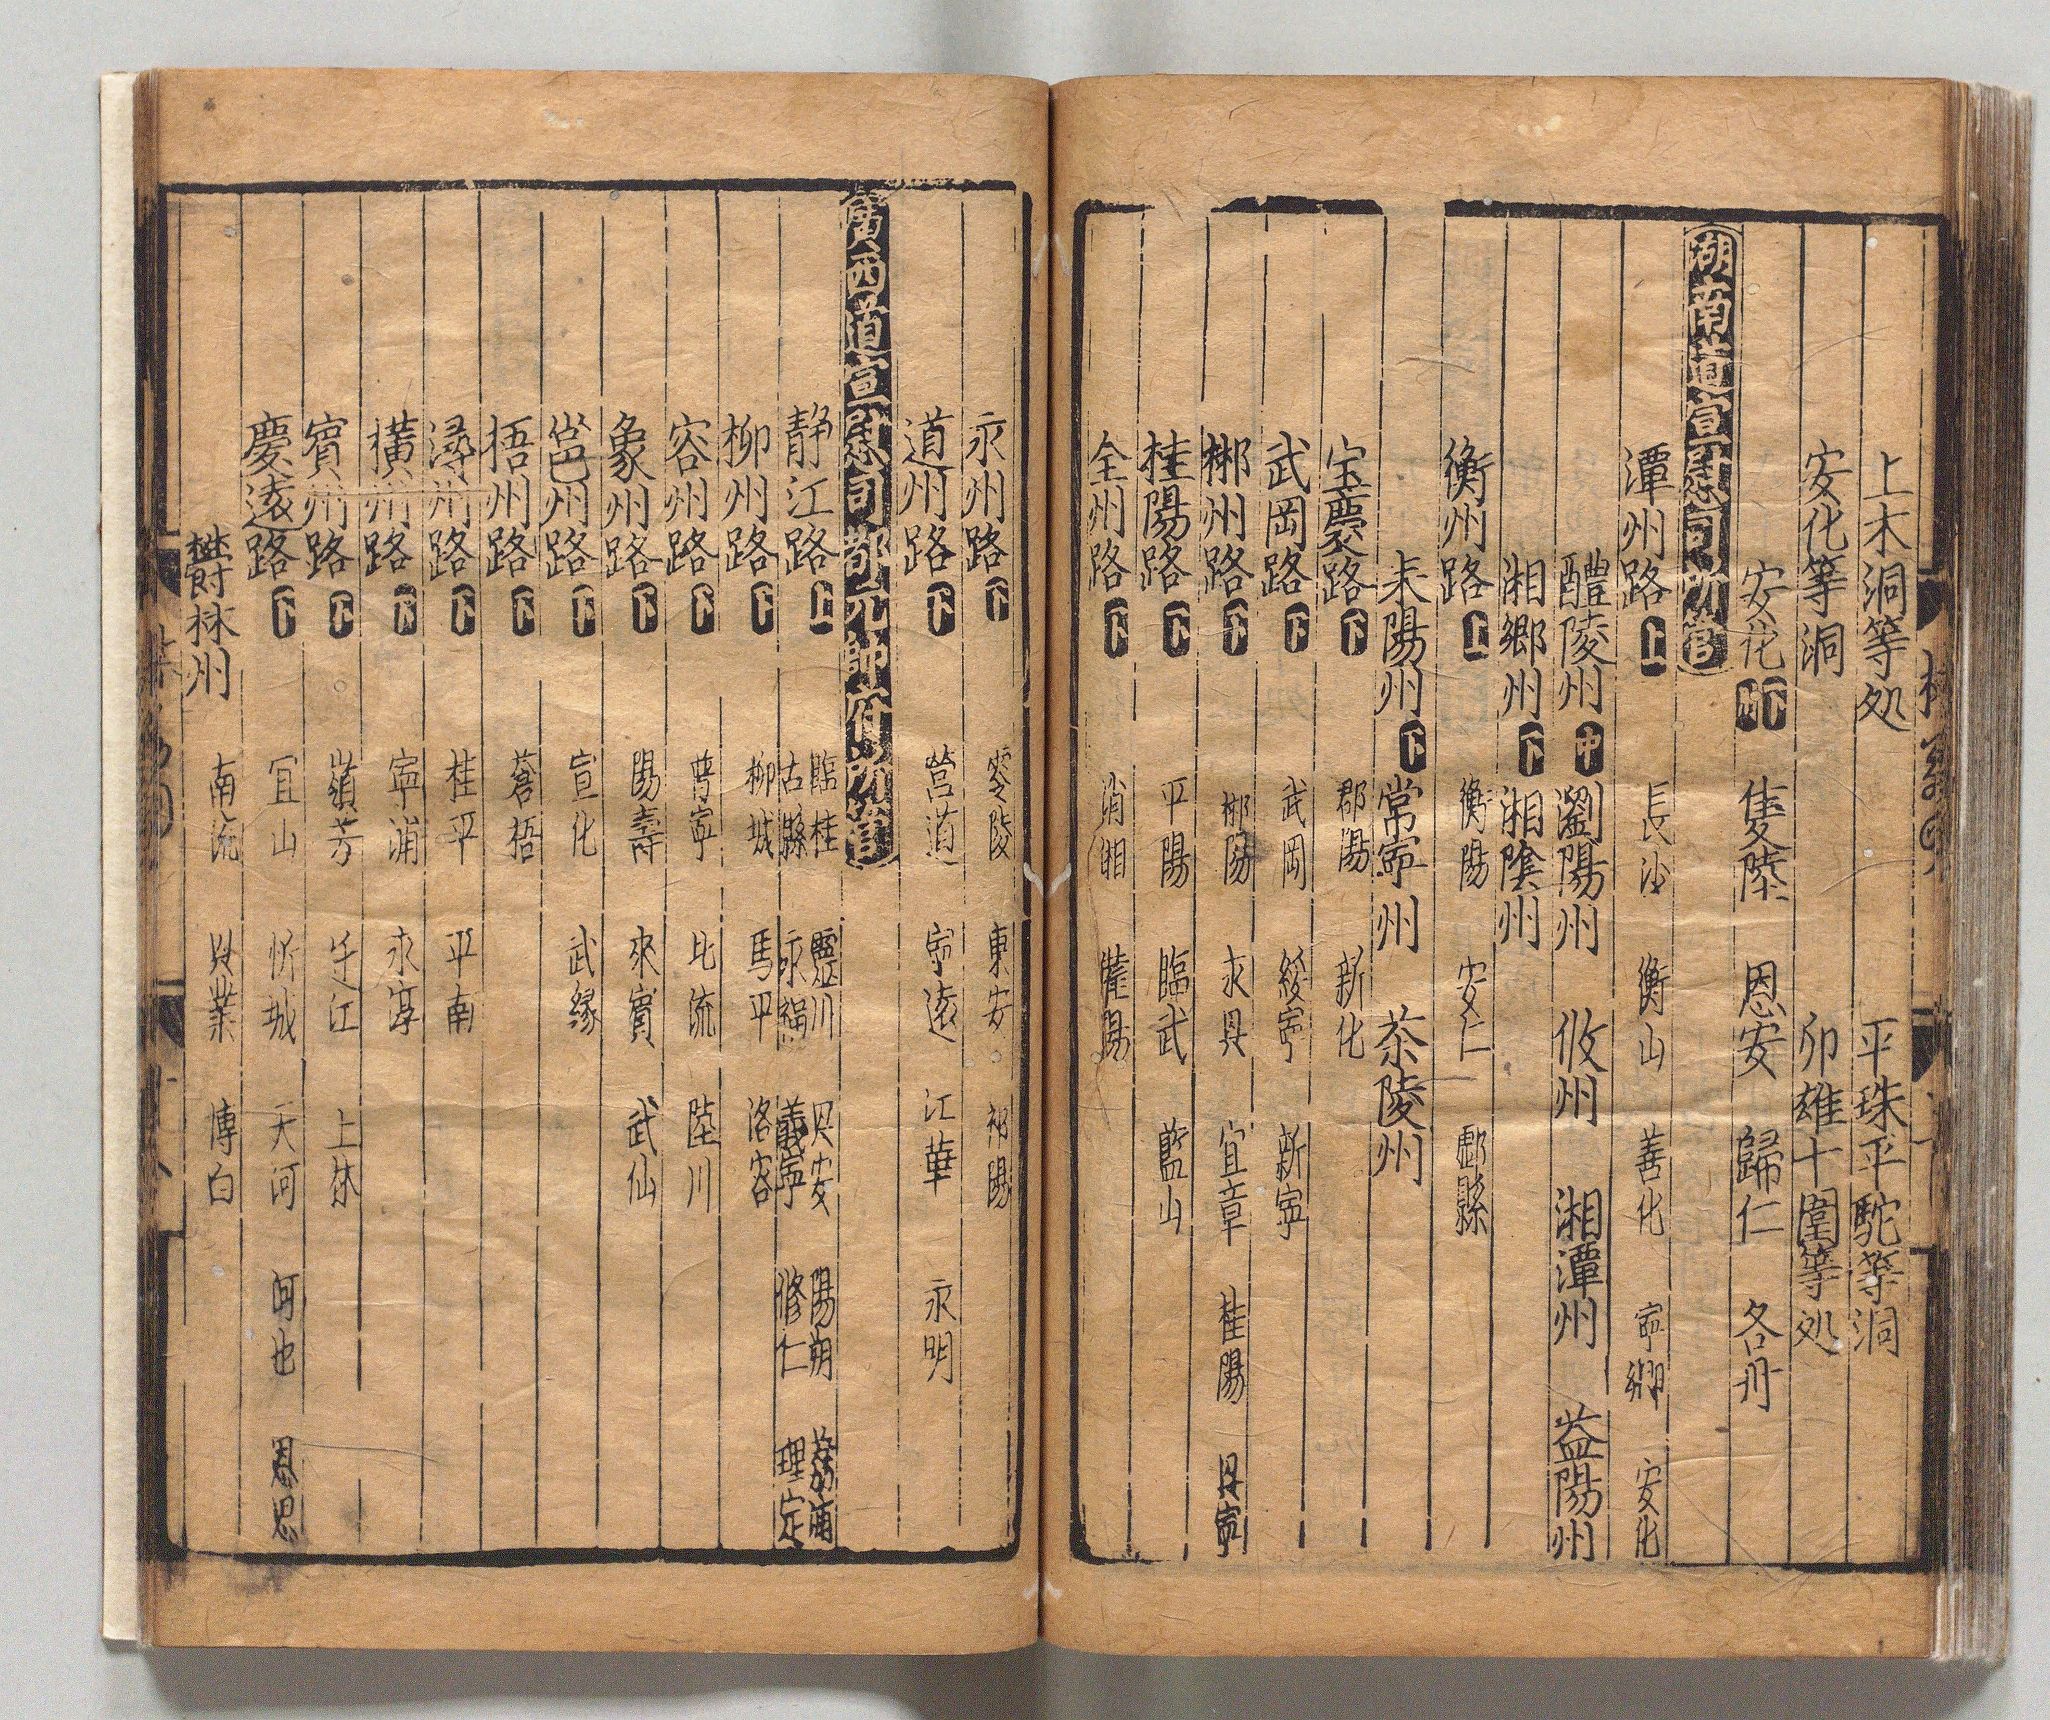 上木洞等処 平珠平駝等洞
安化等洞 卯雄十圍等処
安化下州 隻陸 恩安 歸仁 各丹
湖南道宣慰司所管
潭州路上 長沙 衡山 善化 寧鄉 安化
醴陵州中 瀏陽州 攸州 湘潭州 益陽州
湘鄉州下 湘陰州
衡州路上 衡陽 安仁 酃縣
耒陽州下 常寧州 茶陵州
宝慶路下 邵陽 新化
武岡路下 武岡 綏寧 新寧
郴州路下 郴陽 永興 宜章 桂陽
桂陽路下 平陽 臨武 藍山
全州路下 清湘 灌陽
永州路下 零陵 東安 祁陽
道州路下 營道 寧遠 江華 永明
廣西道宣慰司都元帥府所管
静江路上 臨桂 靈川 興安 陽朔 荔浦
古縣 永福 義寧 修仁 理定
柳州路下 柳城 馬平 洛容
容州路下 普寧 北流 陸川
象州路下 陽壽 來賓 武仙
邕州路下 宣化 武緣
梧州路下 蒼梧
潯州路下 桂平 平南
橫州路下 寧浦 永淳
賓州路下 嶺方 迁江 上林
慶遠路下 宜山 忻城 天河 河池 思恩
欝林州 南流 興業 博白